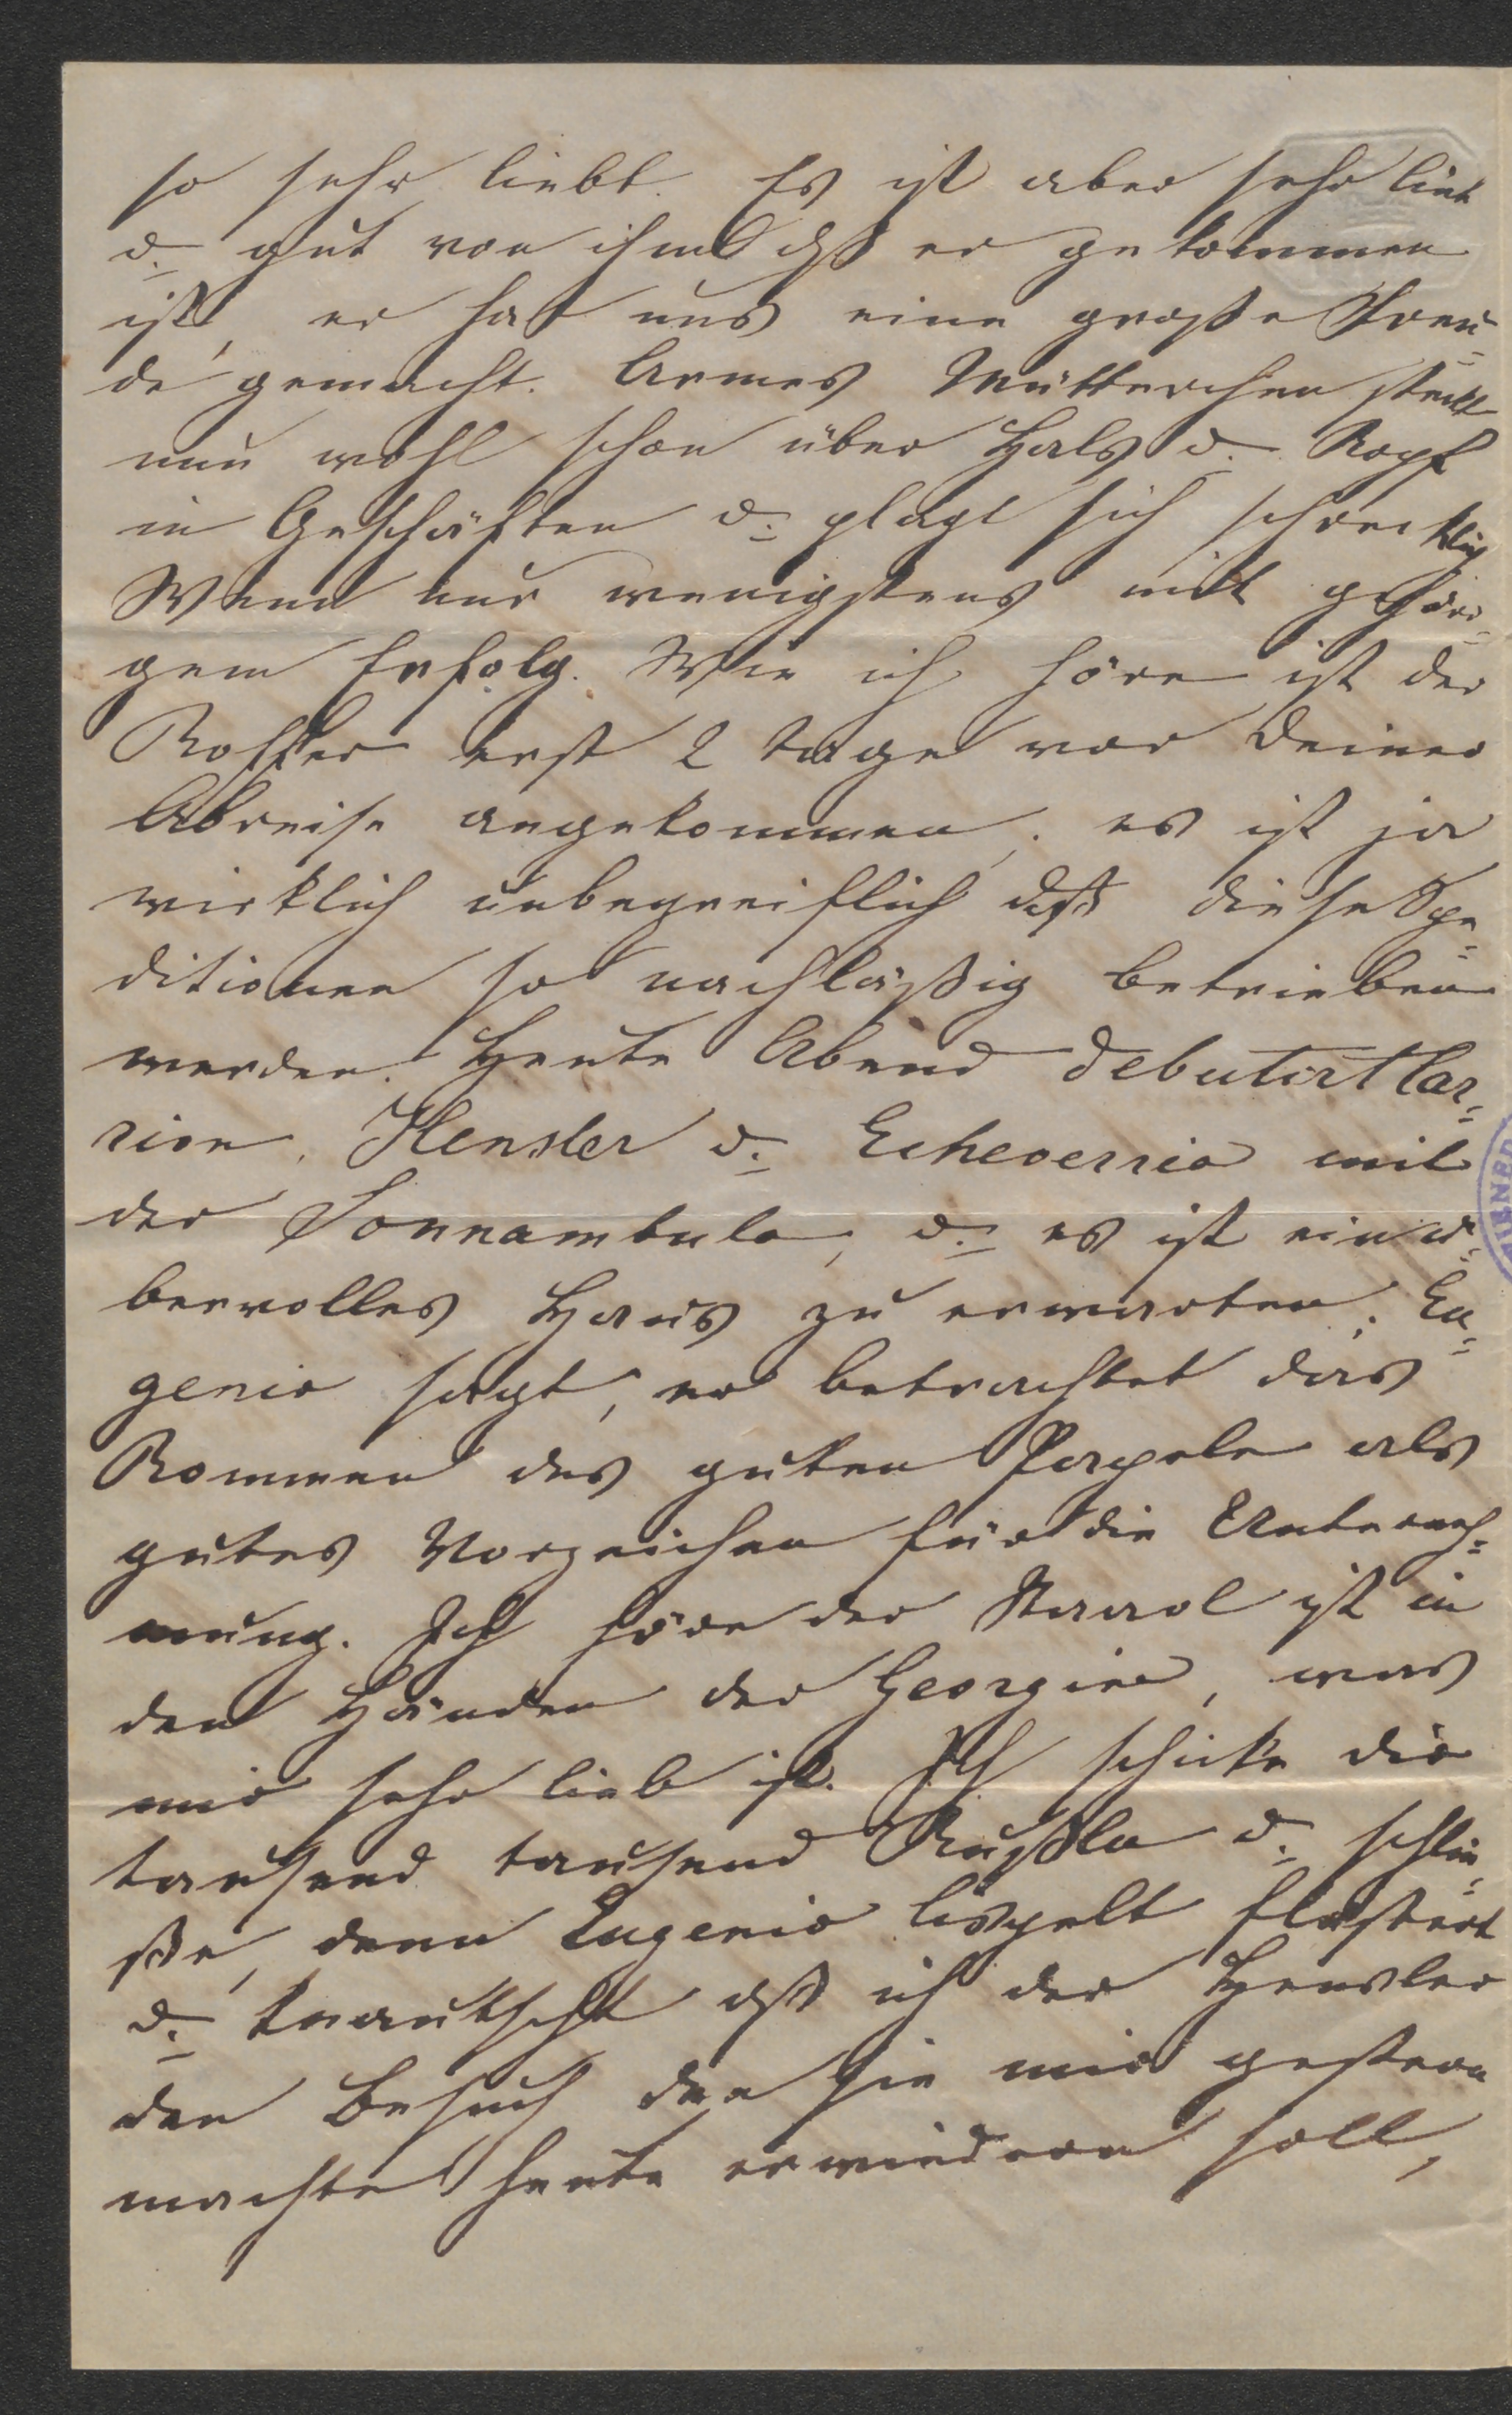 so sehr liebt. Es ist aber sehr lieb
u. gut von ihm dß er gekommen
ist, er hat uns eine große Freu-
de gemacht. Armes Mütterchen steckt
nun wohl schon über Hals u. Kopf
in Geschäften u. plagt sich schrecklich
Wenn nur wenigstens mit gehöri-
gem Erfolg. Wie ich höre ist der
Koffer erst 2 Tage vor Deiner
Abreise angekommen; es ist ja
wirklich unbegreiflich daß diese Spe-
ditionen so nachläßig betrieben
werden. Heute Abend debutirt Car-
rion, Hensler u. Echeverria mit
der Sonnambula, u. es ist ein ü-
bervolles Haus zu erwarten; Eu-
genio sagt, er betrachtet das
Kommen des guten Papele als
gutes Vorzeichen für die Unterneh-
mung. Ich höre der ist in
den Händen der Georgine, was
mir sehr lieb ist. Ich schicke dir
tausend tausend Kußla u. schlie-
ße, denn Eugenio lispelt flüstert
u. trautscht dß ich der Hensler
den Besuch den sie mir gestern
machte heute erwiedern soll,